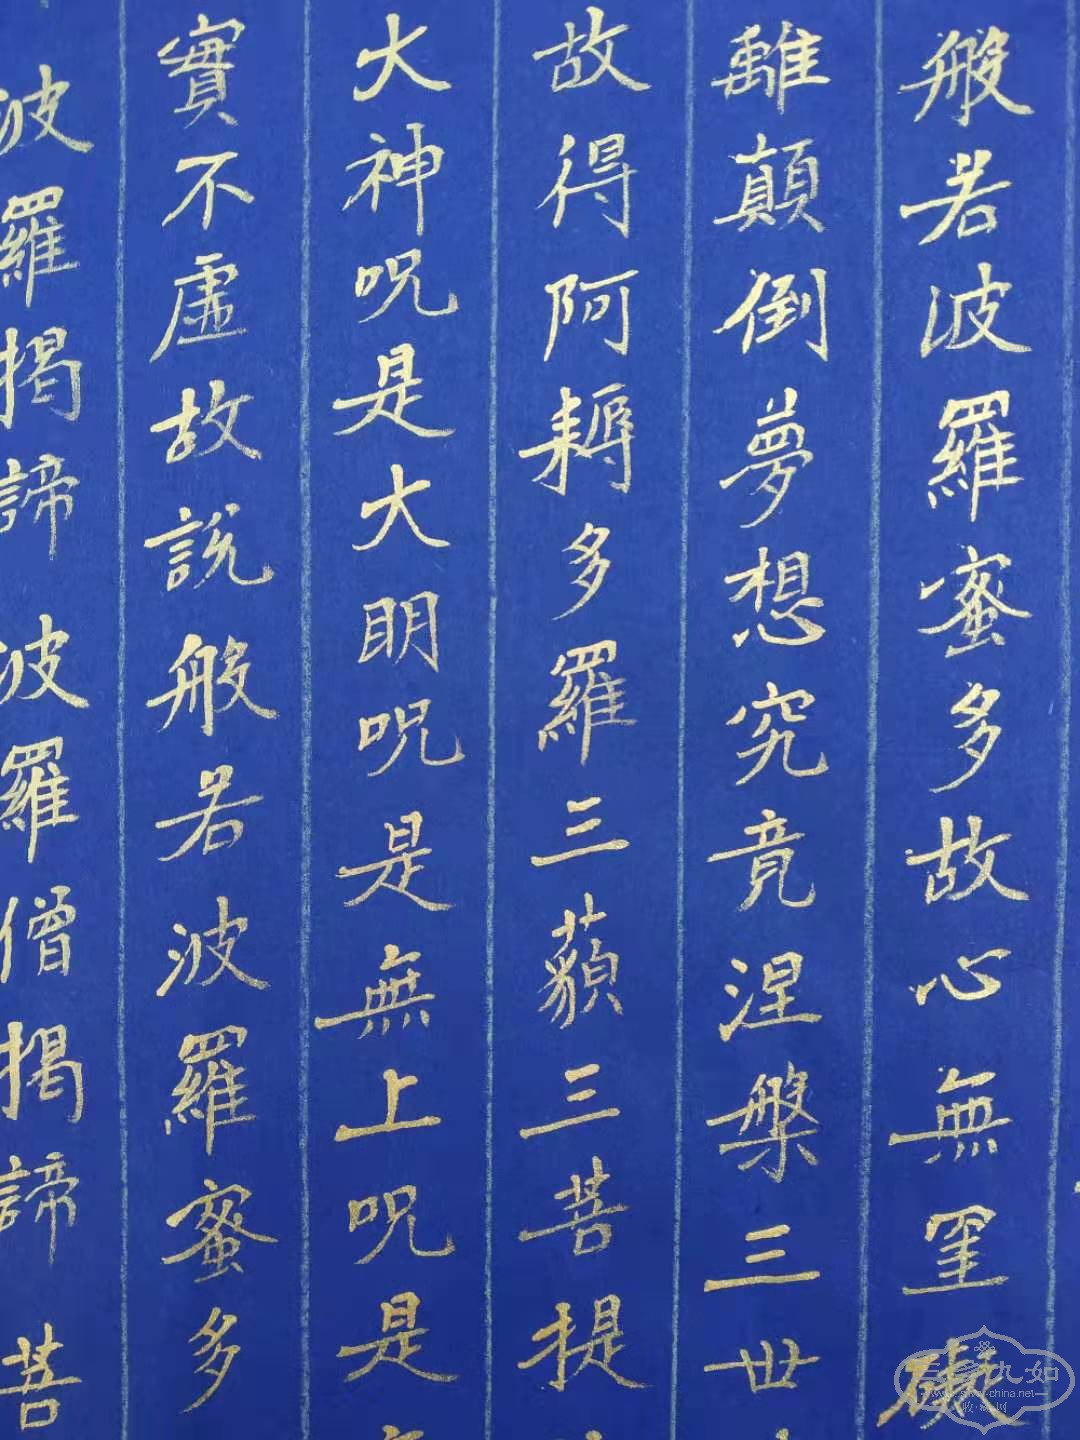 般若波羅蜜多故心無罣礙
離顛倒夢想究竟涅槃三世
故得阿耨多羅三藐三菩提
大神呪是大明呪是無上呪是
實不虛故說般若波羅蜜多
波羅揭諦波羅僧揭諦菩
九如
www.silver-china.net